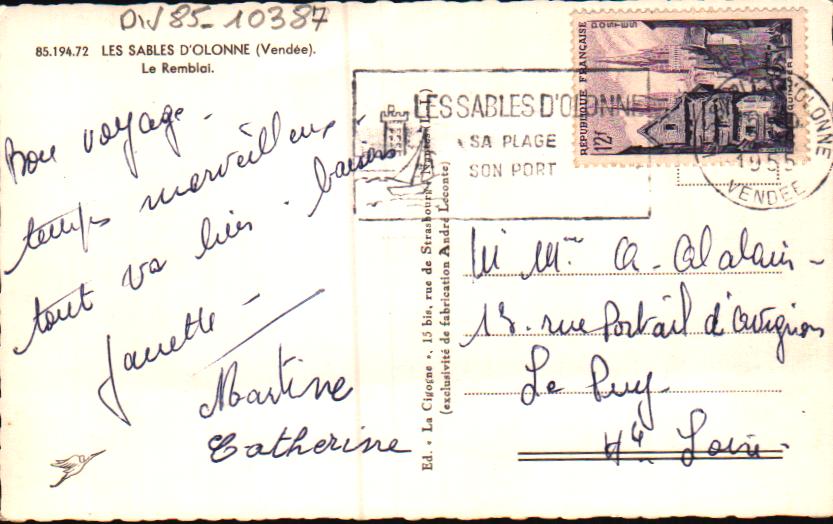 Div 85-10387
85.194.72 LES SABLES D'OLONNE (Vendée).
Le Remblai.
Bon voyage -
temps merveilleux
tout va bien. baisers
Janette -
Martine
Catherine
Ed. « La Cigogne », 15 bis, rue de Strasbourg, Nantes (L.-I.)
(exclusivité de fabrication André Leconte)
LES SABLES D'OLONNE
SA PLAGE
SON PORT
POSTES
RÉPUBLIQUE FRANÇAISE
12F
QUIMPER
OLONNE
1955
VENDEE
M Mme A-
13. rue Portail d'Avignon
Le Puy
Hte Loire-